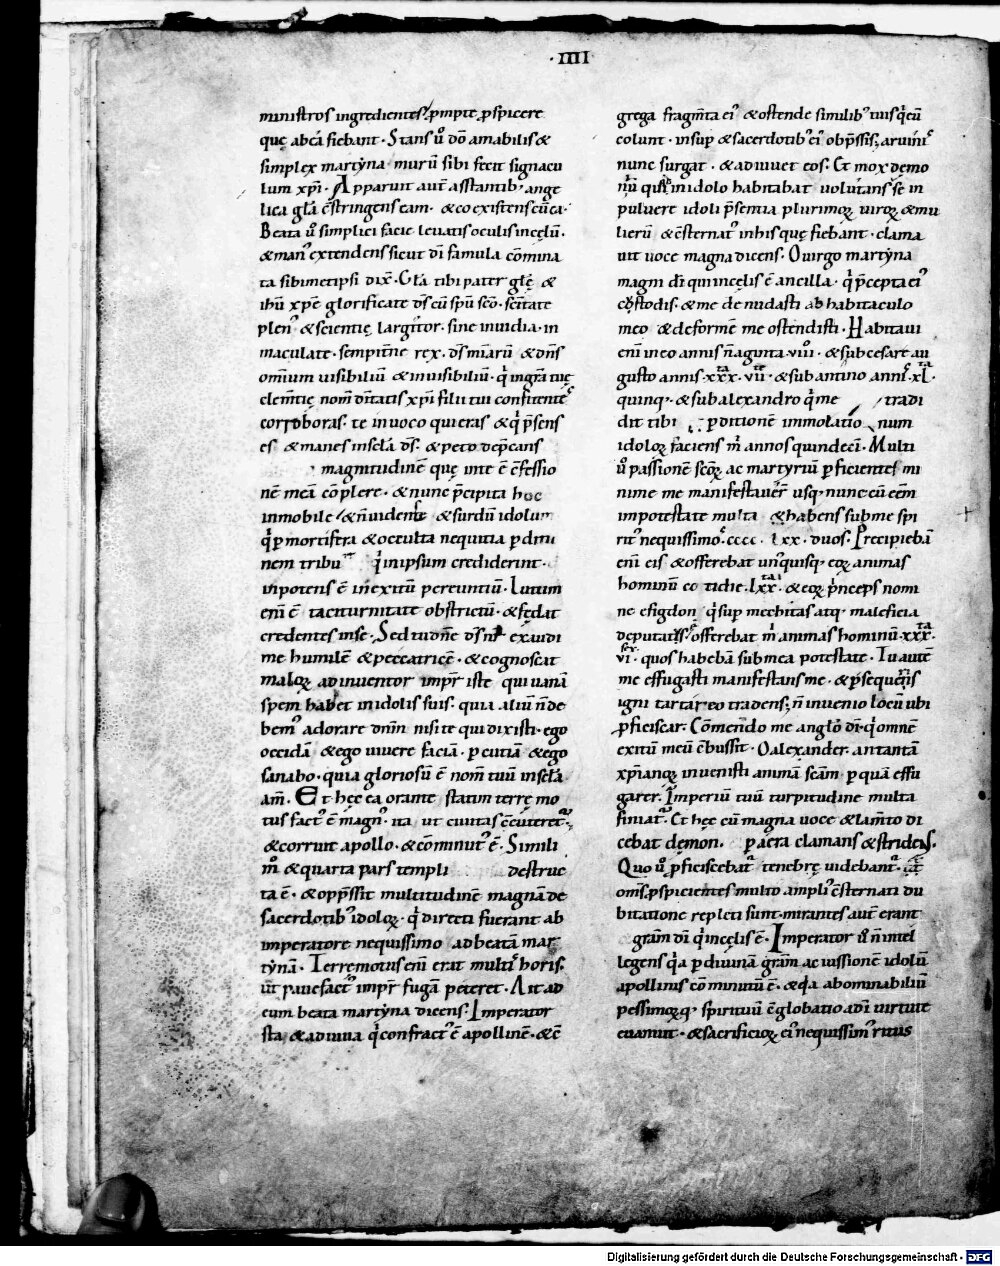 · IIII ·
ministros ingredientes, p̄mpte p̄spicere
quę ab eā fiebant. Stans ů dō amabilis &
simplex martyna. murū sibi fecit signacu
lum xp̄i. Apparuit aut̄ asstantib; ange
lica gl̄a c̄stringens eam. & coexistens cū ea.
Beata ů simplici facie leuatis oculis in cęlū.
& man' extendens sicut dī famula cōmina
ta sibimetipsi dix̄. Gl̄a tibi pater gl̄ę &
ih̄u xp̄e glorificate d̄s cū sp̄u sc̄o. sc̄itate
plen' & scientię largitor. sine inuidia. in
maculate. sempit̄ne rex. d̄s mīarū & dn̄s
omīum uisibiliū & inuisibiliū. q̇ ingr̄a tuę
clem̄tię nom̄ dn̄tatis xp̄i filii tui confitentes
corroboras. te inuoco qui eras & q̇ p̄sens
es & manes in sęla d̄s. & peto dep̄cans
magnitudinē quę in te ē c̄fessio
nē meā cōplere. & nunc p̄cipita hoc
inmobile & n̄ uidens & surdū idolum
q̇ p mortifera & occulta nequitia p dm̄i
nem tribu q̇ in ipsum crediderint.
inpotens ē in exitū pereuntiū. lutum
enī ē taciturnitate obstrictū. & fędat
credentes in se. Sed tu dn̄e d̄s m̄s exaudi
me humilē & peccatricē. & cognoscat
maloꝝ adinuentor imp̄r iste qui uanā
spem habet in idolis suis. quia aliū n̄ de
bem' adorare dn̄m nisi te qui dixisti. ego
occidā & ego uiuere faciā. p cutiā & ego
sanabo. quia gloriosū ē nom̄ tuū in sęla
am̄. Et hęc ea orante statim terrę mo
tus fact' ē magn'. ita ut ciuitas c̄cuteret',
& corruit apollo. & cōminut' ē. Simili
m̊ & quarta pars templi destruc
ta ē. & opp̄ssit multitudinē magnā de
sacerdotib; idoloꝝ. q̇ directi fuerant ab
imperatore nequissimo ad beatā mar
tynā. Terremotus enī erat multis horis.
ut pauefact' imp̄r fugā peteret. Ait ad
eum beata martyna dicens. Imperator
sta & adiuua q̇ confract' ē apollinē. & c̄
grega fragm̄ta ei' & ostende similib; tuis q̇ eū
colunt. insup & sacerdotib; ei' opp̄ssis, a ruinis
nunc surgat. & adiuuet eos. Et mox demo
niū quis in idolo habitabat uolutans se in
puluere idoli p̄sentia plurimoꝝ uiroꝝ & mu
lierū & c̄sternat' in his quę fiebant. clama
uit uoce magna dicens. O uirgo martyna
magni dī qui in cęlis ē ancilla. q̇ p̄cepta ei'
c'stodis. & me denudasti ab habitaculo
meo & deformē me ostendisti. Habitaui
enī in eo annis n̄aginta. viii. & sub cesare au
gusto annis. xxx. vii. & sub antino annis. xl.
quinq;. & sub alexandro q̇ me tradi
dit tibi p ditionē immolationum
idoloꝝ faciens m̄ annos quindeci. Multi
ů passionē sc̄oꝝ ac martyriū pficientes mi
nime me manifestauer̄ usq; nunc cū eēm
in potestate multa & habens sub me spi
rit' nequissimos. cccc. lxx. duos. Precipiebā
enī eis & offerebat un'quisq; eoꝝ animas
hominū cotidie. lxx. & eoꝝ p̄nceps nomi
ne efigdon q̇ sup mechitas atq; maleficia
deputatis offerebat m̄ animas hominū. xxx.
vi. quos habebā sub mea potestate. Tu autē
me effugasti manifestans me. & p̄sequēs
igni tartareo tradens, n̄ inuenio locū ubi
pficiscar. Cōmendo me anglo dī. q̇ omnē
exitū meū c̄bussit. O alexander. an tantā
xp̄ianoꝝ inuenisti animā sc̄am p quā effu
garer. Imperiū tuū turpitudine multa
finiat'. Et hęc cū magna uoce & lam̄to di
cebat dęmon. p aera clamans & stridens.
Quo ů pficiscebat' tenebrę uidebant'. ita
om̄s p̄spicientes multo ampli' c̄sternati du
bitatione repleti sunt. mirantes aut̄ erant
gr̄am dī q̇ in cęlis ē. Imperator ů n̄ intel
legens q̇a p diuinā gr̄am ac iussionē idolū
apollinis cōminutū ē. & q̇a abominabiliū
pessimoꝝq; spirituū c̄globatio a dī uirtute
euanuit. & sacrificioꝝ ei' nequissim' ritus
Digitalisierung gefördert durch die Deutsche Forschungsgemeinschaft · DFG